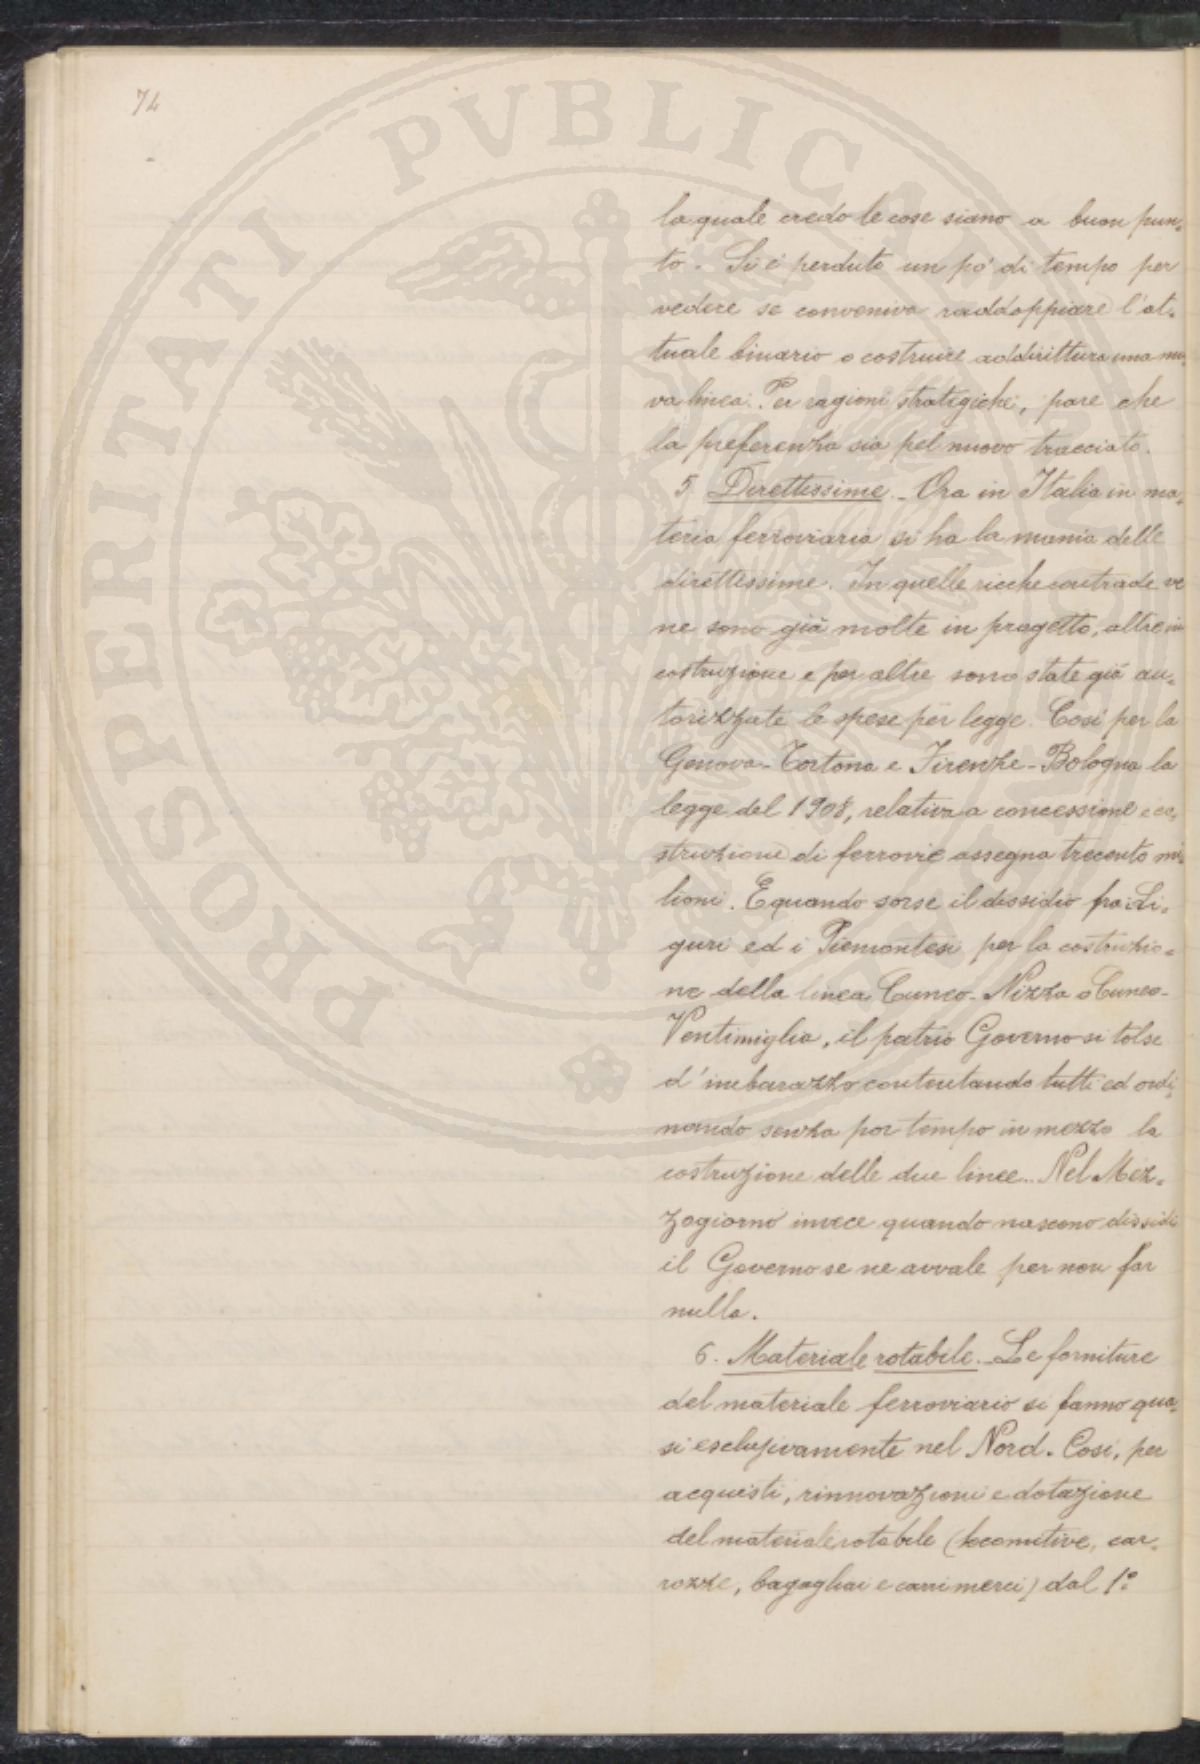 74
PROSPERITATI PVBLICAE
la quale credo le cose siano a buon pun-
to. Si è perduto un pó di tempo per
vedere se conveniva raddoppiare l'at-
tuale binario o costruire addirittura una nuo-
va linea. Per ragioni strategiche, pare che
la preferenza sia pel nuovo tracciato.
5. Direttissime. - Ora in Italia in ma-
teria ferroviaria si ha la mania delle
direttissime. In quelle ricche contrade ve
ne sono già molte in progetto, altre in
costruzione e per altre sono state già au-
torizzate le spese per legge. Così per la
Genova-Tortona e Firenze-Bologna la
legge del 1908, relativa a concessione e co-
struzione di ferrovie assegna trecento mi-
lioni. E quando sorse il dissidio fra i Li-
guri ed i Piemontesi per la costruzio-
ne della linea Cuneo-Nizza o Cuneo-
Ventimiglia, il patrio Governo si tolse
d'imbarazzo contentando tutti ed ordi-
nando senza por tempo in mezzo la
costruzione delle due linee... Nel Mez-
zogiorno invece quando nascono dissidi
il Governo se ne avvale per non far
nulla.
6. Materiale rotabile. - Le forniture
del materiale ferroviario si fanno qua-
si esclusivamente nel Nord. Così, per
acquisti, rinnovazioni e dotazione
del materiale rotabile (locomotive, car-
rozze, bagagliai e carri merci) dal 1°